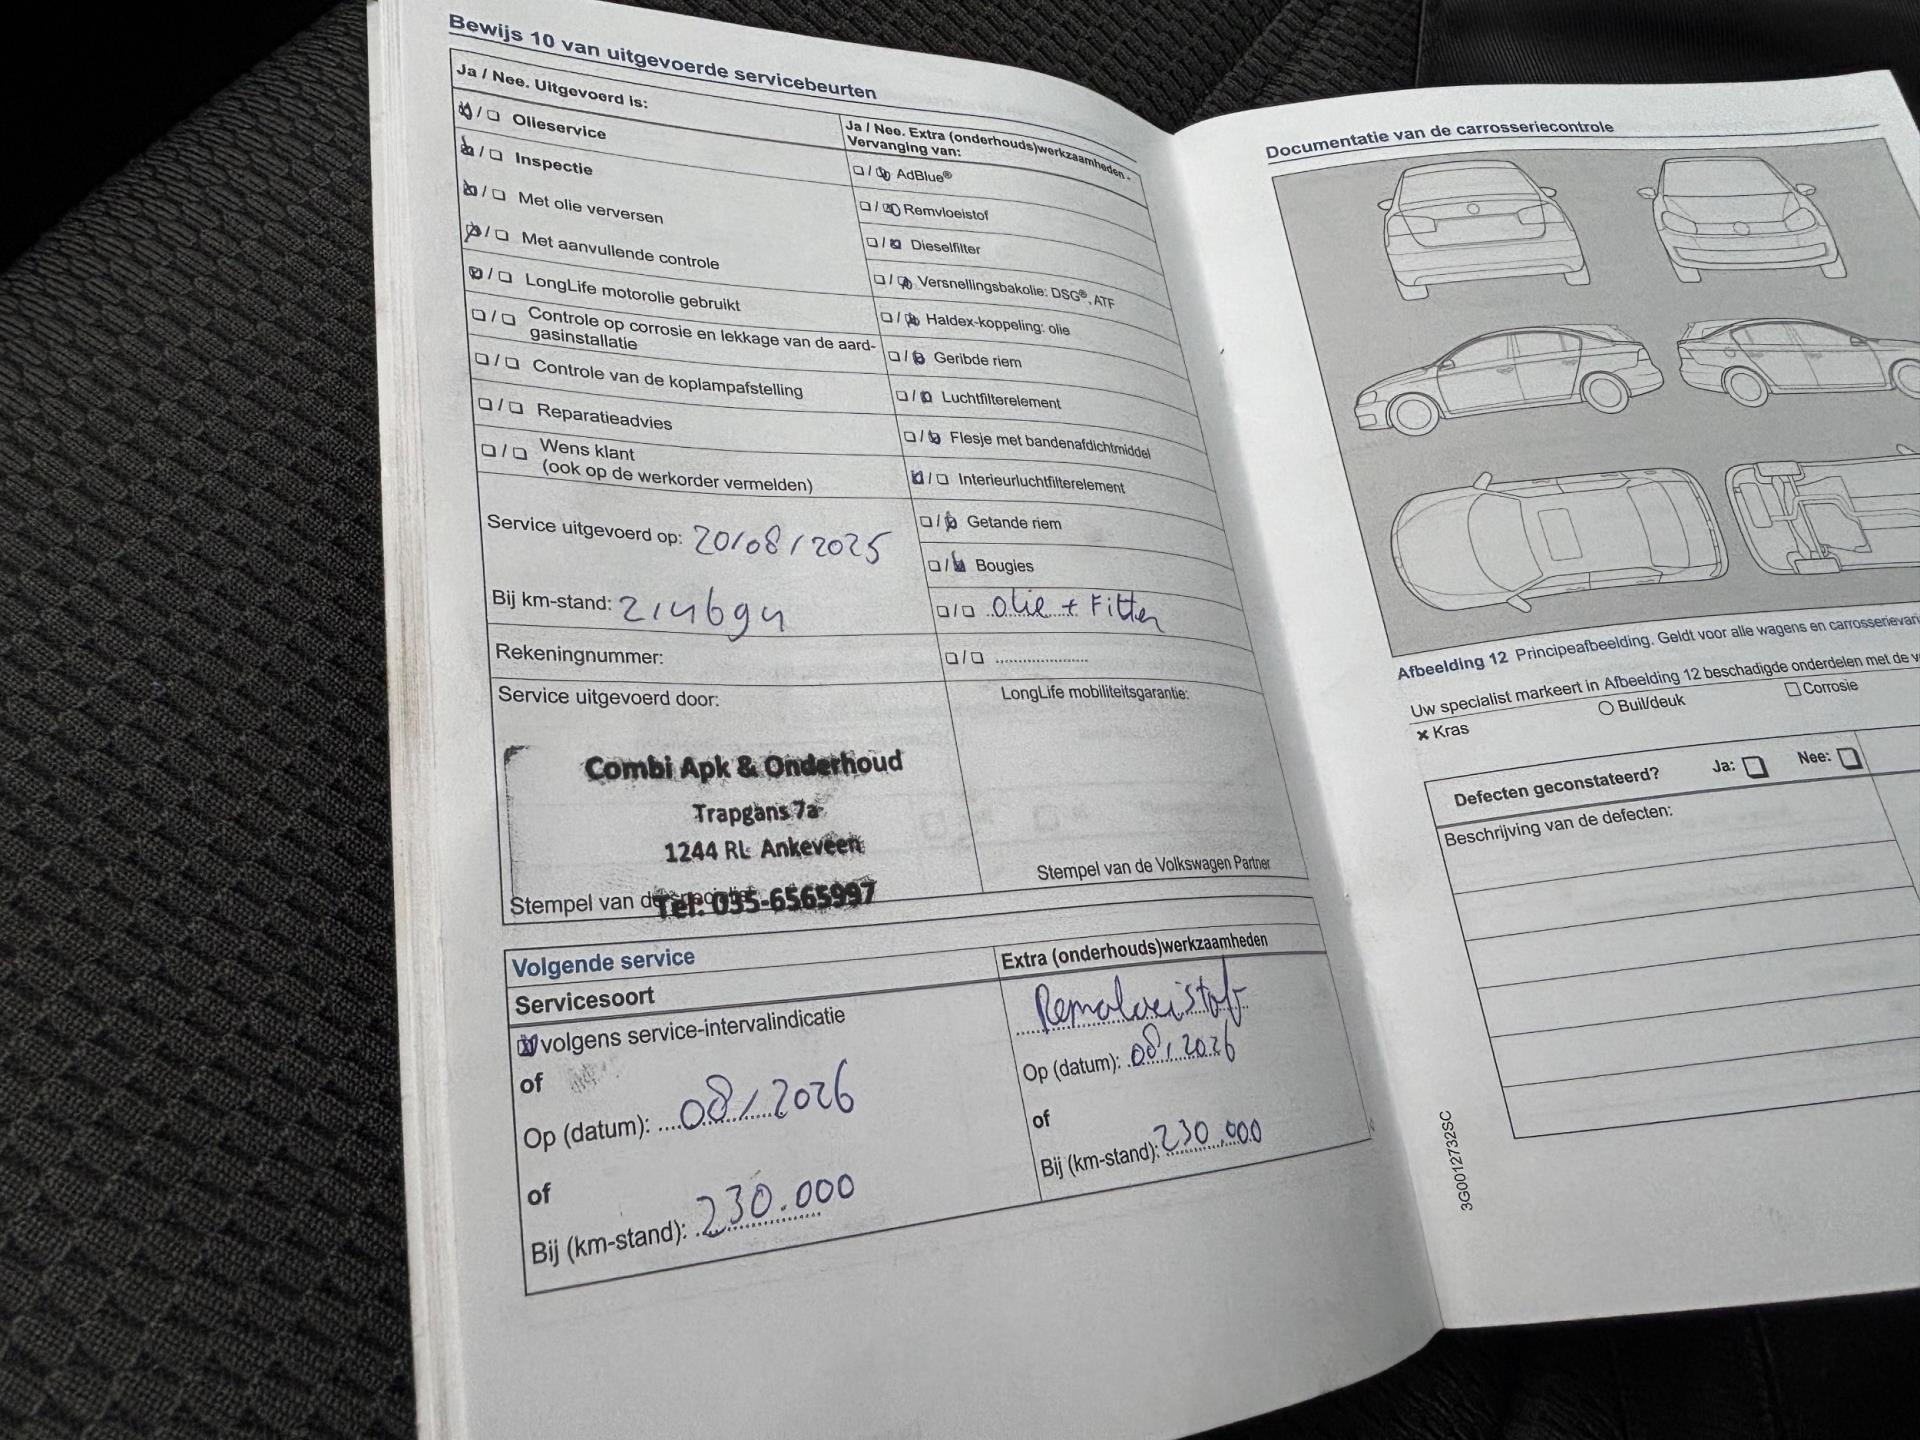 Bewijs 10 van uitgevoerde servicebeurten
Ja / Nee. Uitgevoerd is:
/ Olieservice
/ Inspectie
/ Met olie verversen
/ Met aanvullende controle
/ LongLife motorolie gebruikt
/ Controle op corrosie en lekkage van de aard-
gasinstallatie
/ Controle van de koplampafstelling
/ Reparatieadvies
/ Wens klant
(ook op de werkorder vermelden)
Service uitgevoerd op: 20/08/2025
Bij km-stand: 214694
Rekeningnummer:
Service uitgevoerd door:
Combi Apk & Onderhoud
Trapgans 7a
1244 RL Ankeveen
Tel: 035-6565997
Stempel van de
Ja / Nee. Extra (onderhouds)werkzaamheden -
Vervanging van:
/ AdBlue®
/ Remvloeistof
/ Dieselfilter
/ Versnellingsbakolie: DSG®, ATF
/ Haldex-koppeling: olie
/ Geribde riem
/ Luchtfilterelement
/ Flesje met bandenafdichtmiddel
/ Interieurluchtfilterelement
/ Getande riem
/ Bougies
/ olie + Filter
/ ....................
LongLife mobiliteitsgarantie:
Stempel van de Volkswagen Partner
Volgende service
Servicesoort
volgens service-intervalindicatie
of
Op (datum): 08/2026
of
Bij (km-stand): 230.000
Extra (onderhouds)werkzaamheden
Remvloeistof
Op (datum): 08/2026
of
Bij (km-stand): 230.000
Documentatie van de carrosseriecontrole
Afbeelding 12 Principeafbeelding. Geldt voor alle wagens en
Uw specialist markeert in Afbeelding 12 beschadigde onderdelen met de
× Kras
Buil/deuk
Corrosie
Defecten geconstateerd? Ja: Nee:
Beschrijving van de defecten:
3G0012732SC